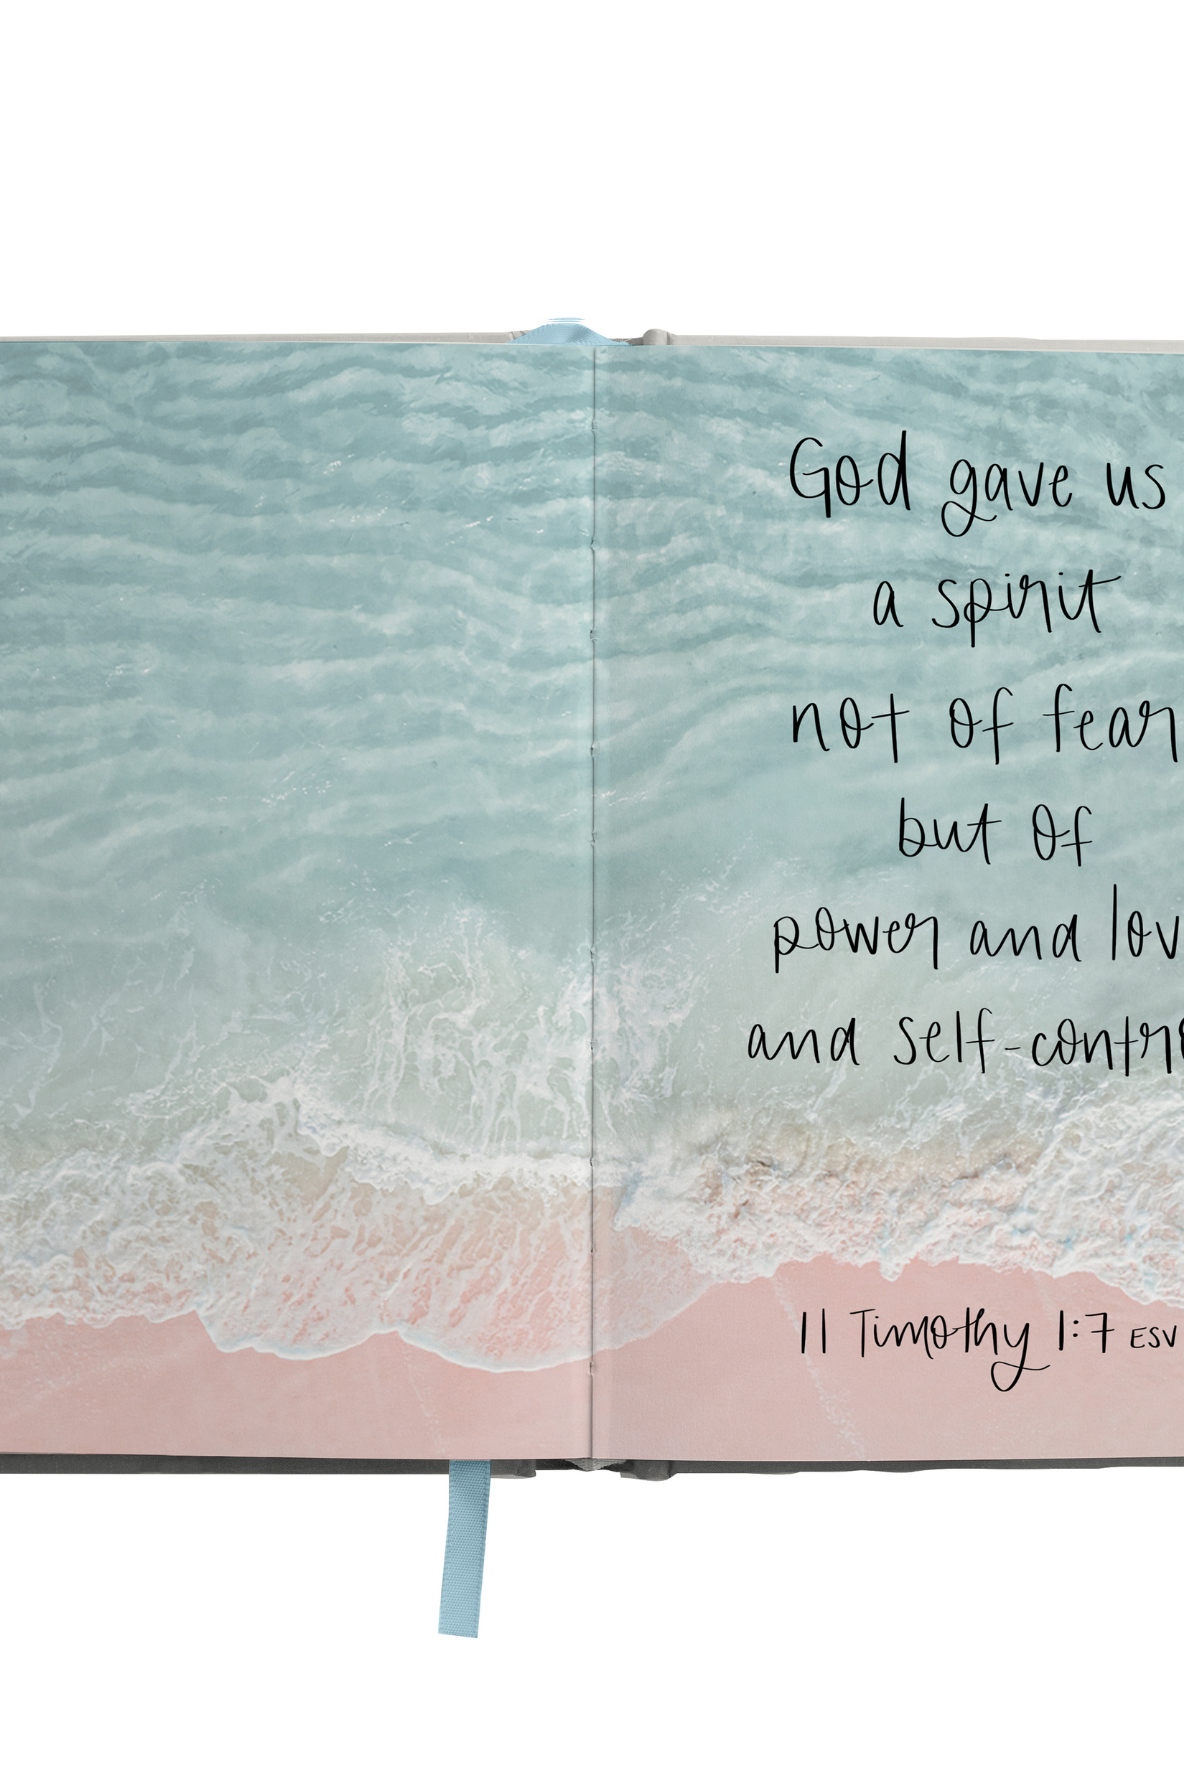 God gave us
a spirit
not of fear
but of
power and lov
and self-contro
11 Timothy 1:7 ESV